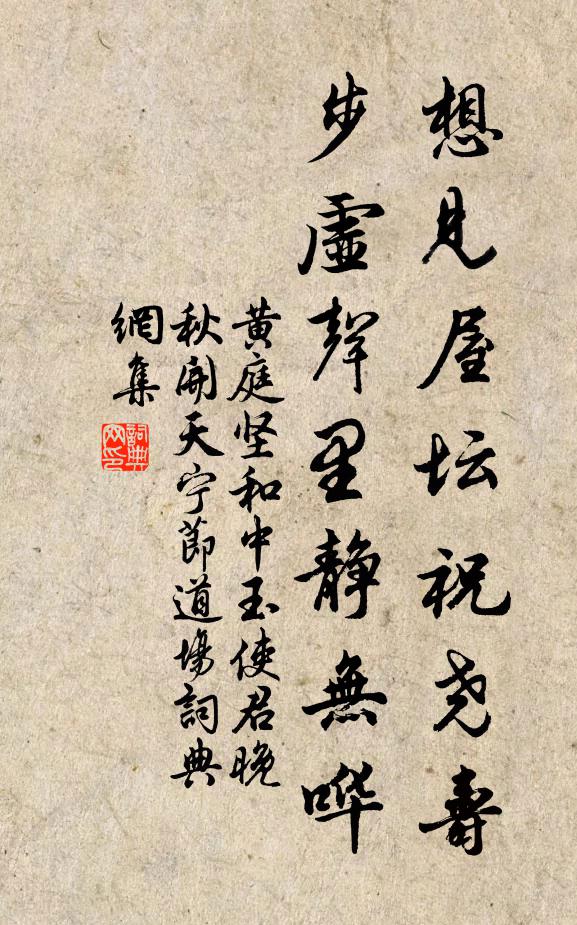 想見屋坛祝尧壽
步虛聲里靜無哗
黃庭坚和中玉使君晚
秋開天宁節道場詞典
網集
詞典
网印